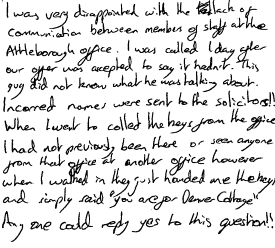 I was very disappointed with the lack of
communication between members of staff at the
Attleborough office. I was called 1 day after
our offer was accepted to say it hadn't. This
guy did not know what he was talking about.
Incorrect names were sent to the solicitors!!
When I went to collect the keys from the office
I had not previously been there or seen anyone
from that office at another office however
when I walked in they just handed me the keys
and simply said "you are for Cottage"
Any one could reply yes to this question!!